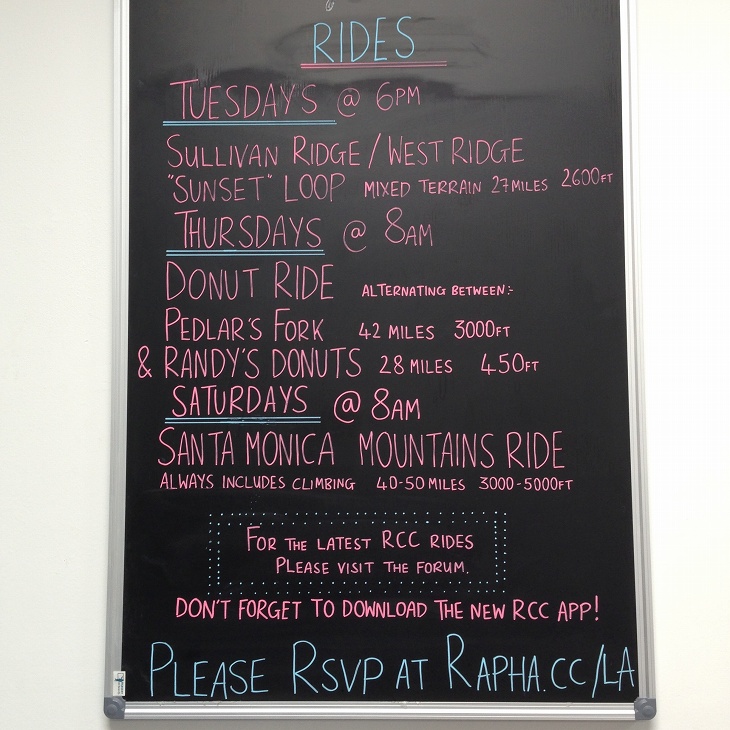 RIDES
TUESDAY'S @ 6PM
SULLIVAN RIDGE / WEST RIDGE
"SUNSET" LOOP MIXED TERRAIN 27 MILES 2600FT
THURSDAYS @ 8AM
DONUT RIDE ALTERNATING BETWEEN:-
PEDLAR'S FORK 42 MILES 3000FT
& RANDY'S DONUTS 28 MILES 450FT
SATURDAYS @ 8AM
SANTA MONICA MOUNTAINS RIDE
ALWAYS INCLUDES CLIMBING 40-50 MILES 3000-5000FT
FOR THE LATEST RCC RIDES
PLEASE VISIT THE FORUM.
DON'T FORGET TO DOWNLOAD THE NEW RCC APP!
PLEASE RSVP AT RAPHA.CC/LA